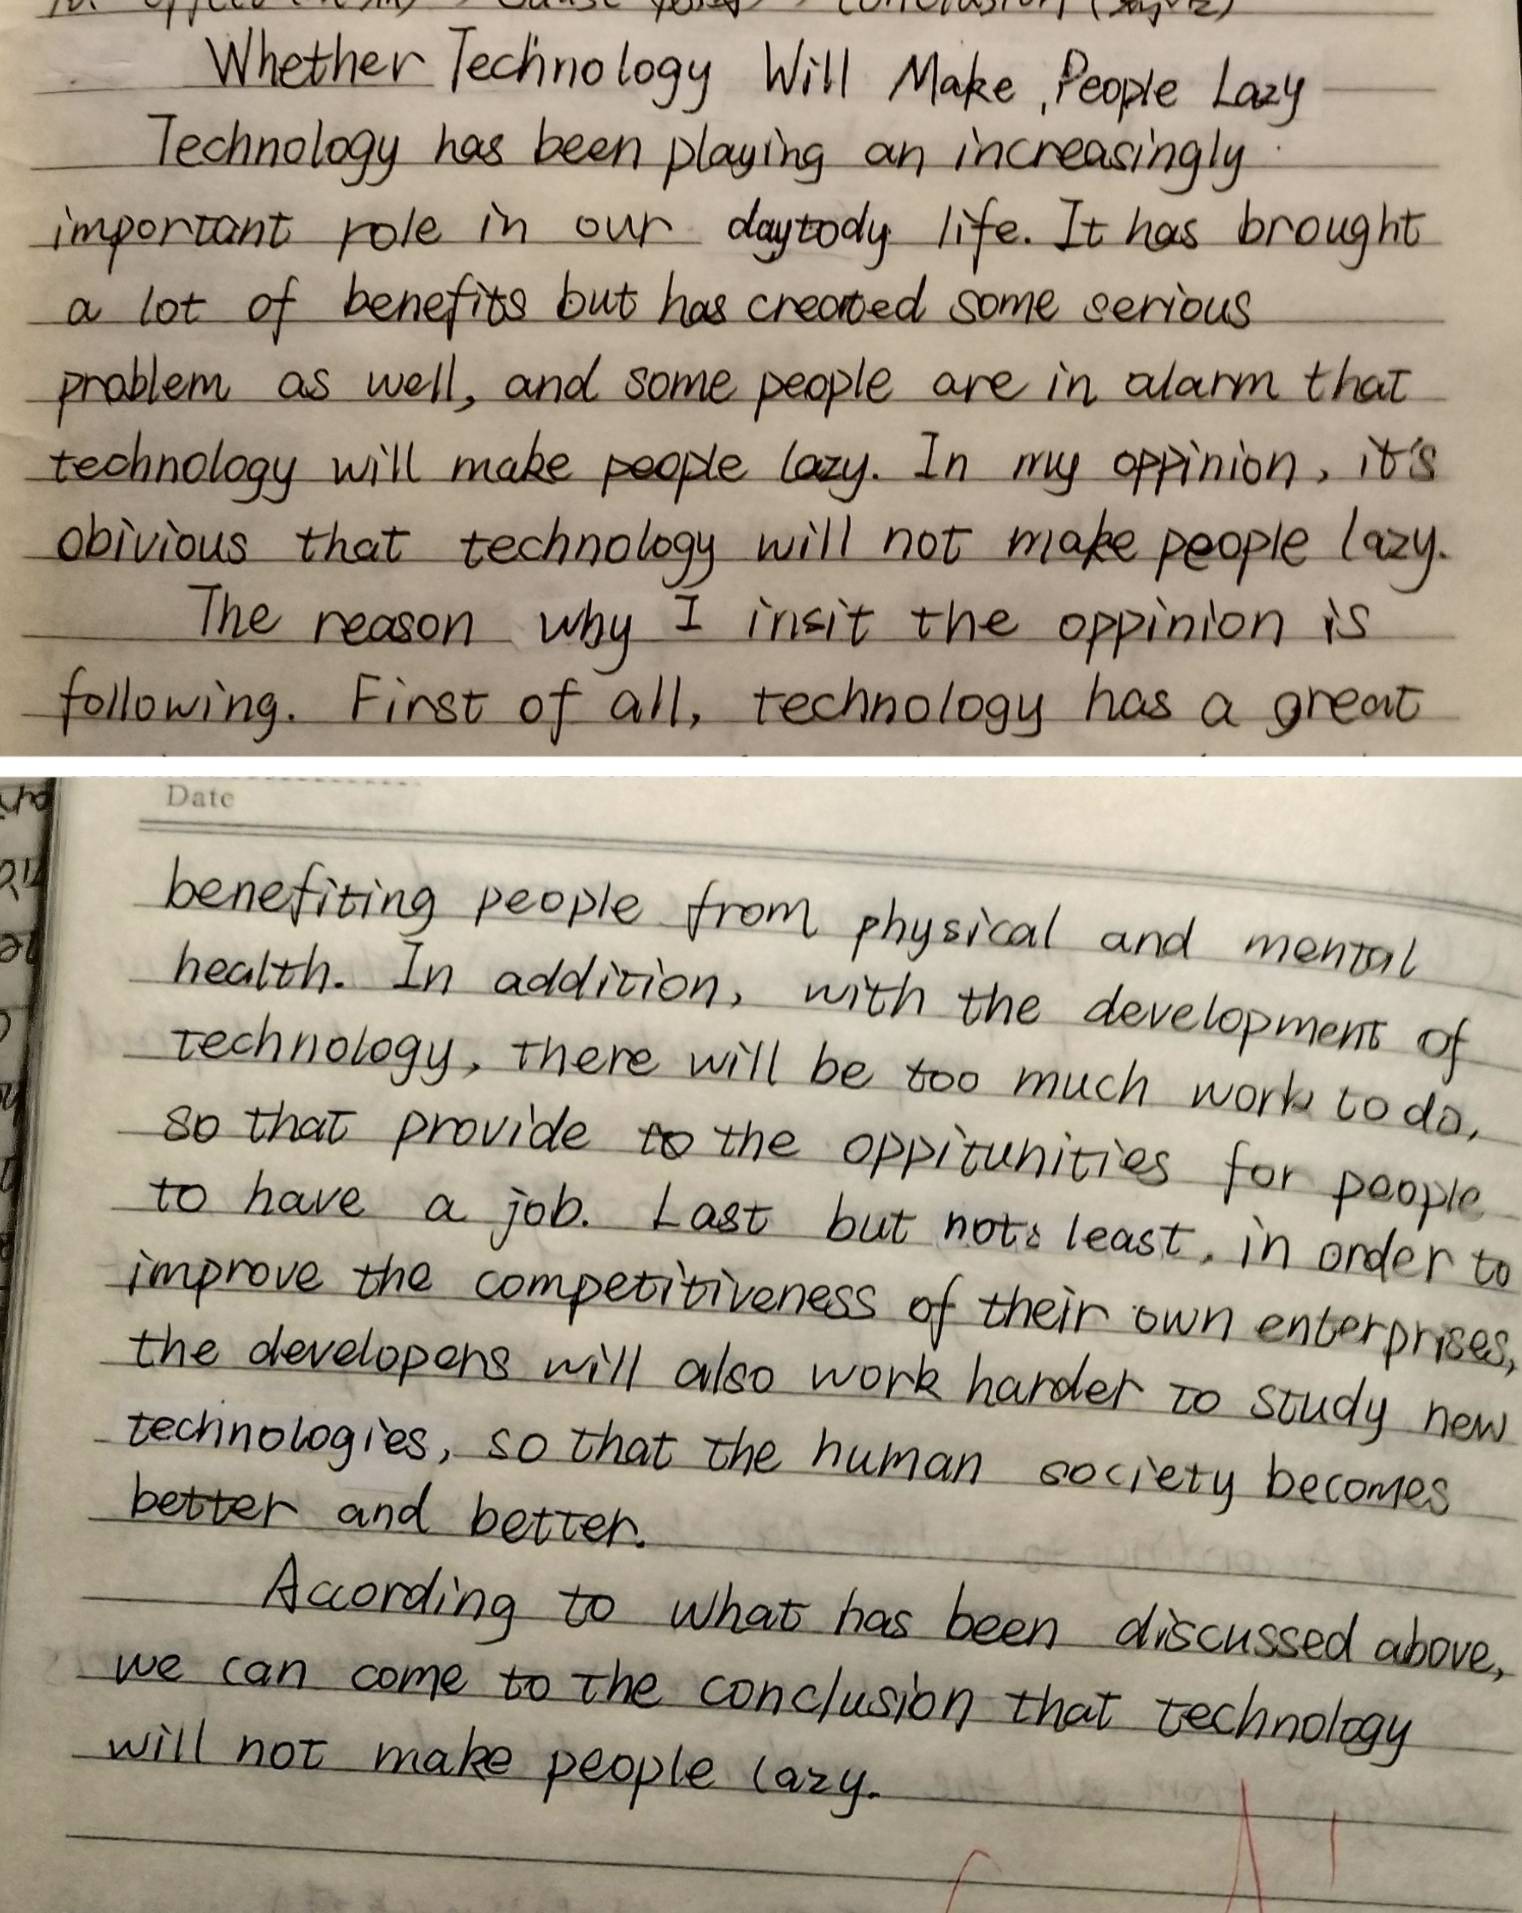 Whether Technology Will Make People Lazy
Technology has been playing an increasingly
important role in our daytody life. It has brought
a lot of benefits but has created some serious
problem as well, and some people are in alarm that
technology will make people lazy. In my oppinion, it's
obivious that technology will not make people lazy.
The reason why I insit the oppinion is
following. First of all, technology has a great
Date
benefiting people from physical and mental
health. In addition, with the development of
technology, there will be too much work to do,
so that provide to the oppitunities for people
to have a job. Last but not least, in order to
improve the competitiveness of their own enterprises,
the developers will also work harder to study new
technologies, so that the human society becomes
better and better.
According to what has been discussed above,
we can come to the conclusion that technology
will not make people lazy.